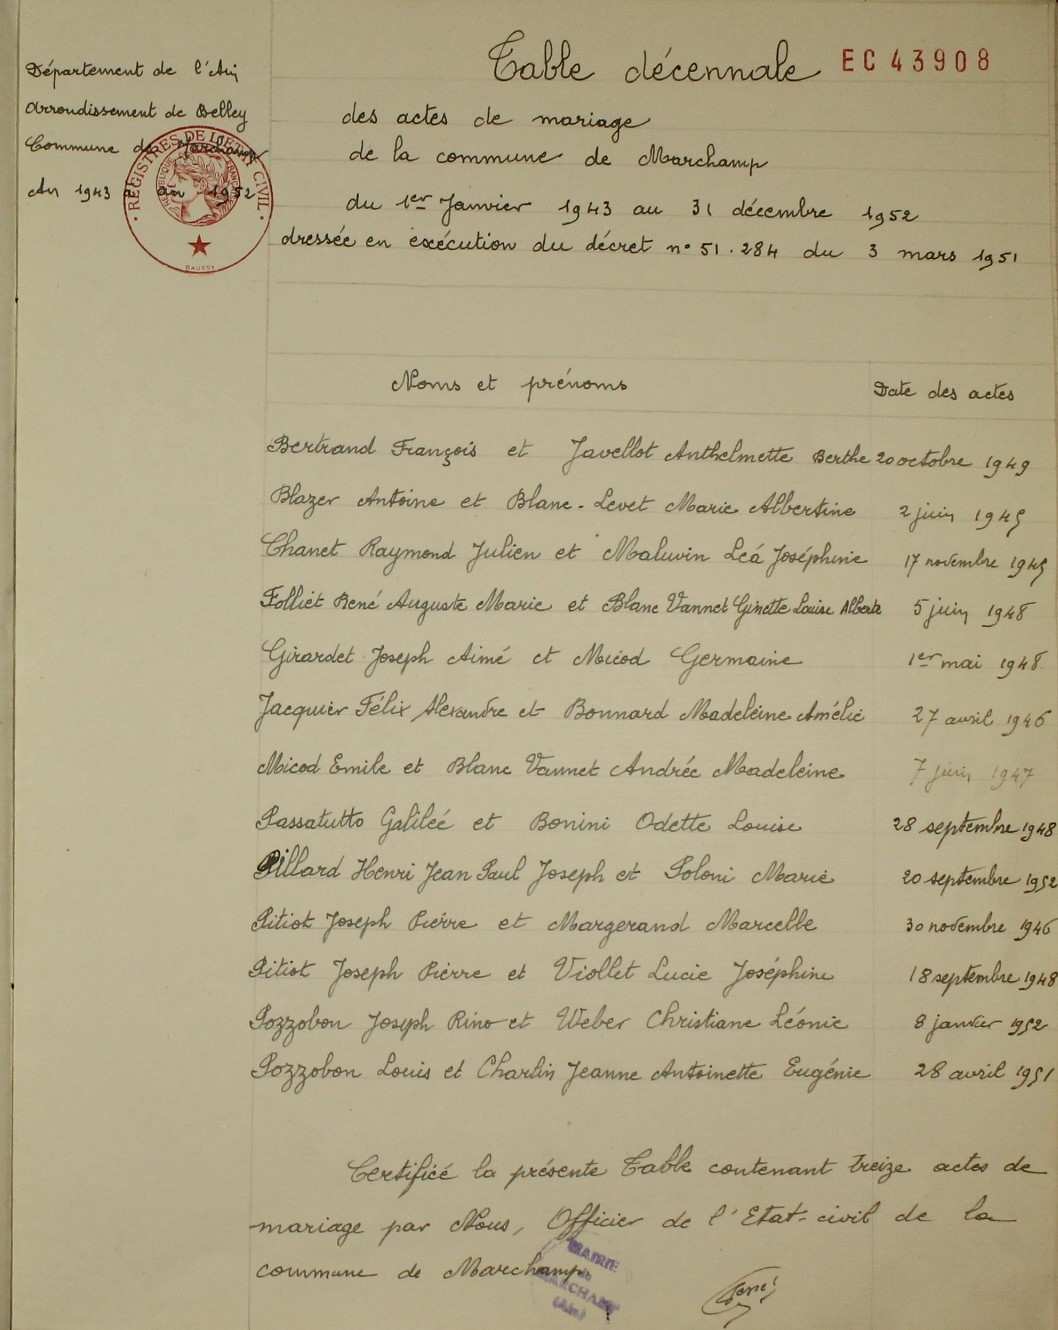 Département de l'Ain
Arrondissement de Belley
Commune de Marchamp
An 1943 à an 1952
REGISTRES DE L'ETAT CIVIL
REPUBLIQUE FRANÇAISE
Table décennale EC 43908
des actes de mariage
de la commune de Marchamp
du 1er Janvier 1943 au 31 décembre 1952
dressée en exécution du décret n° 51.284 du 3 mars 1951
Noms et prénoms Date des actes
Bertrand François et Javellot Anthelmette Berthe 20 octobre 1949
Blazer Antoine et Blanc-Levet Marie Albertine 2 juin 1945
Chanet Raymond Julien et Maluvin Léa Joséphine 17 novembre 1945
Folliet René Auguste Marie et Blanc Vannet Ginette Louise Alberte 5 juin 1948
Girardet Joseph Aimé et Micod Germaine 1er mai 1948
Jacquier Félix Alexandre et Bonnard Madeleine Amélie 27 avril 1946
Micod Emile et Blanc Vannet Andrée Madeleine 7 juin 1947
Passatutto Galilée et Bonini Odette Louise 28 septembre 1948
Pillard Henri Jean Paul Joseph et Poloni Marie 20 septembre 1952
Pitiot Joseph Pierre et Margerand Marcelle 30 novembre 1946
Pitiot Joseph Pierre et Viollet Lucie Joséphine 18 septembre 1948
Pozzobon Joseph Rino et Weber Christiane Léonie 8 janvier 1952
Pozzobon Louis et Charlin Jeanne Antoinette Eugénie 28 avril 1951
Certifié la présente Table contenant treize actes de
mariage par Nous, Officier de l'Etat-civil de la
commune de Marchamp
MAIRIE
de
MARCHAMP
(Ain)